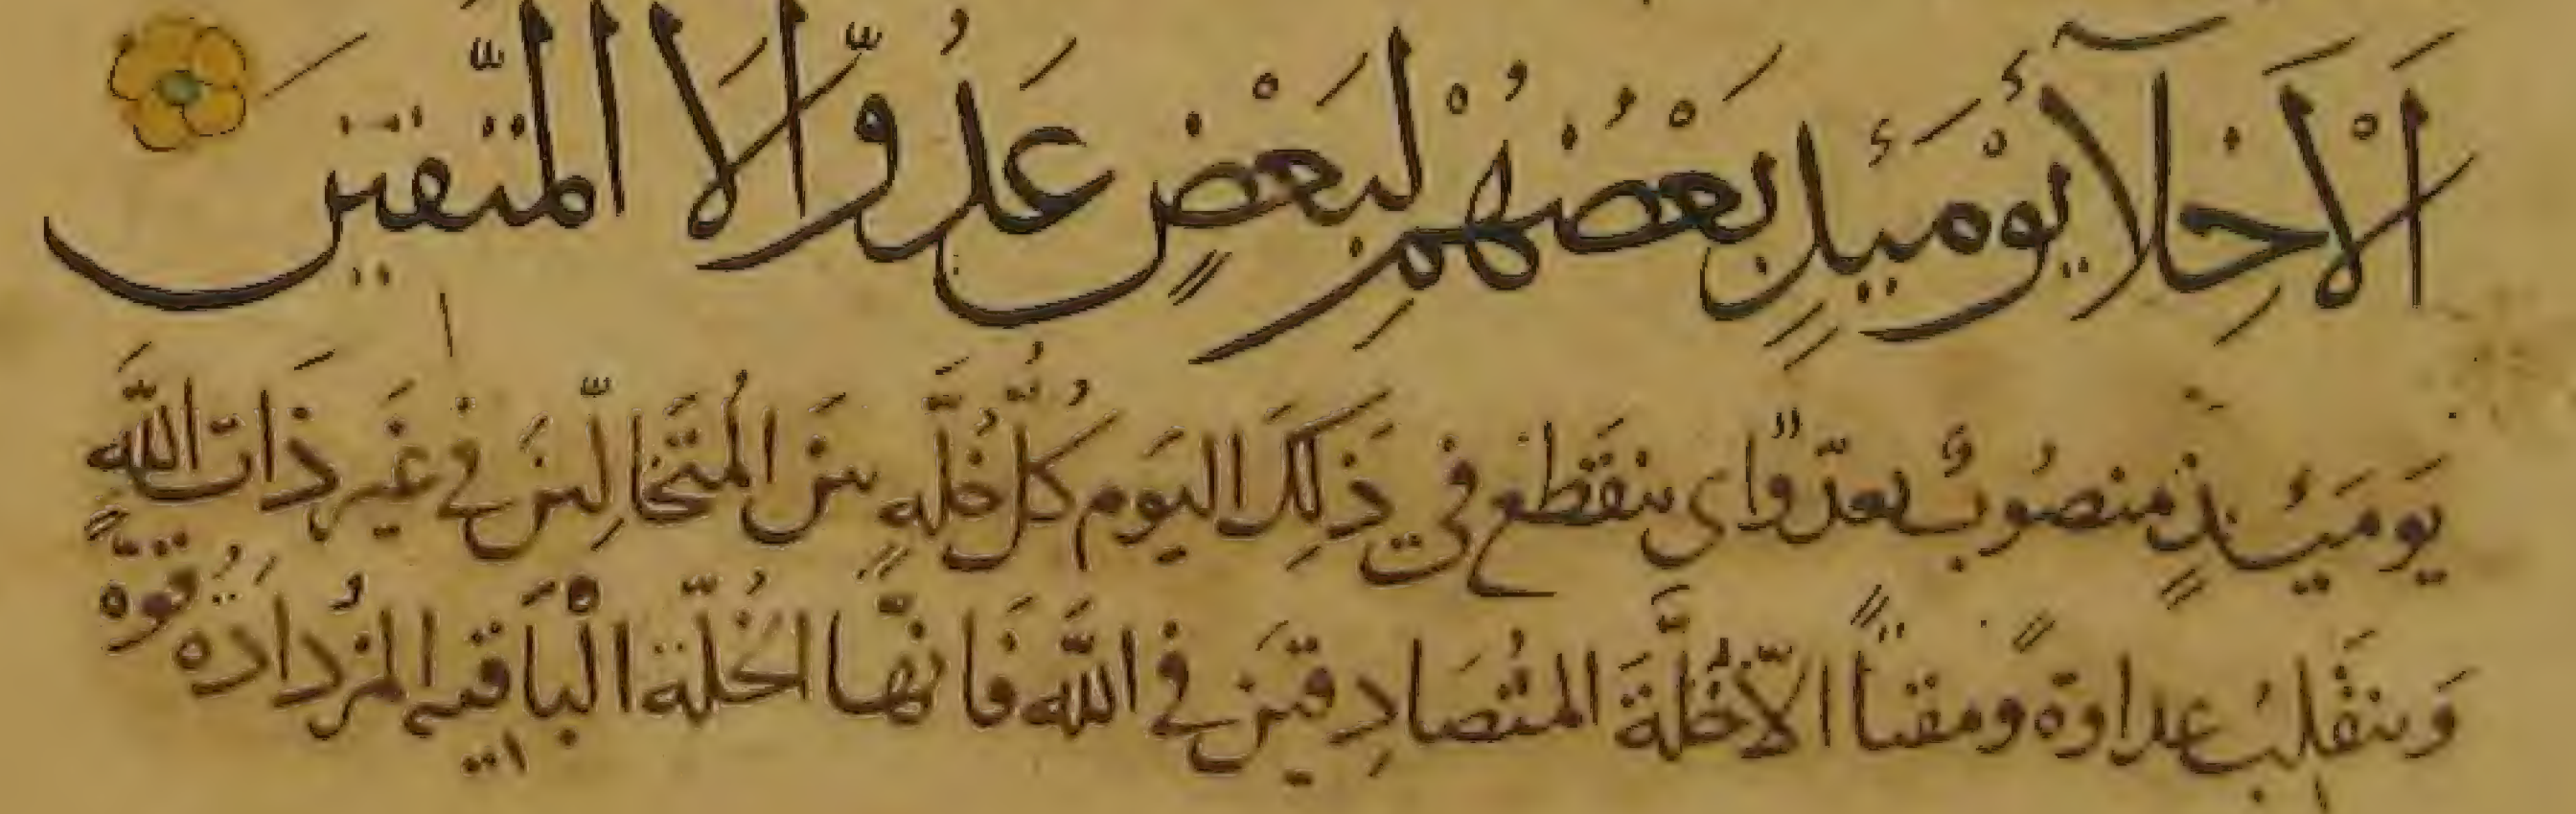 اَلْاَخِلَّآءُ يَوْمَئِذٍ بَعْضُهُمْ لِبَعْضٍ عَدُوٌّ اِلَّا الْمُتَّقِينَ
يَوْمَئِذٍ مَنْصُوبٌ بعدوّ اى ينقطع فى ذَلِكَ اليَوم كُلُّ خُلَّةٍ بَيْنَ المُتَخَالِّينَ فى غَيرِ ذَات اللّٰهِ
وَينقَلِبُ عداوةً ومقتاً الّا خُلَّةَ المُتَصَادِقينَ فى اللّٰه فَانّهَا الخُلّة الْبَاقِية المُزدادة قُوَّةً